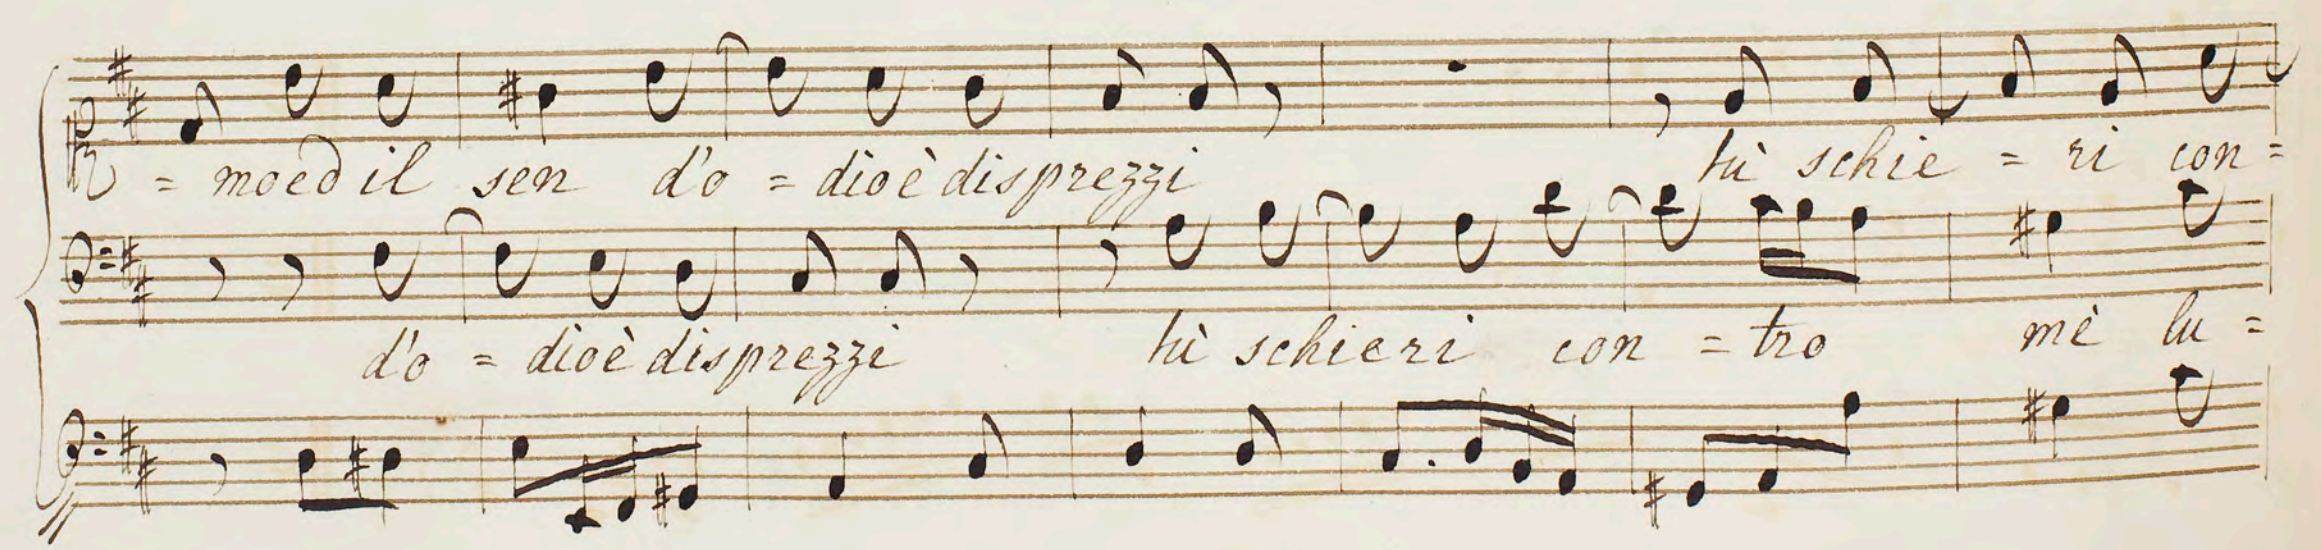 = moed il sen d'o = dioè disprezzi tù schie = ri con =
d'o = dioè disprezzi tù schieri con = tro mè lu =